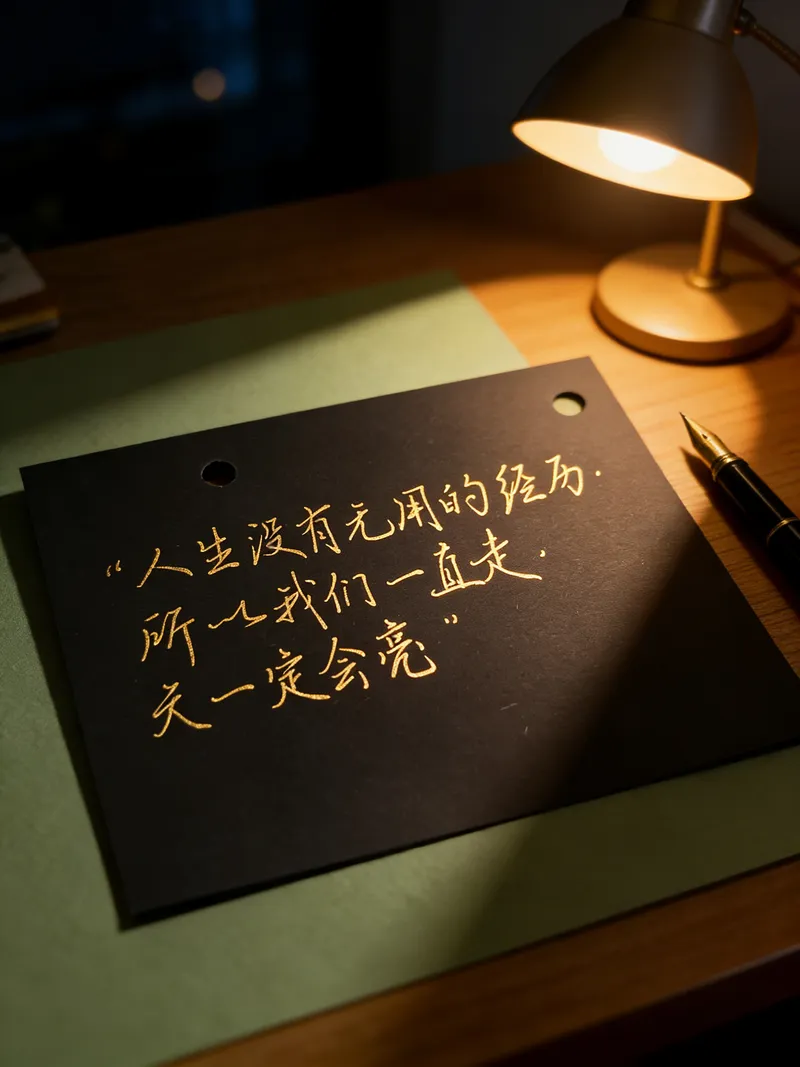 “人生没有无用的经历.
所以我们一直走.
天一定会亮”